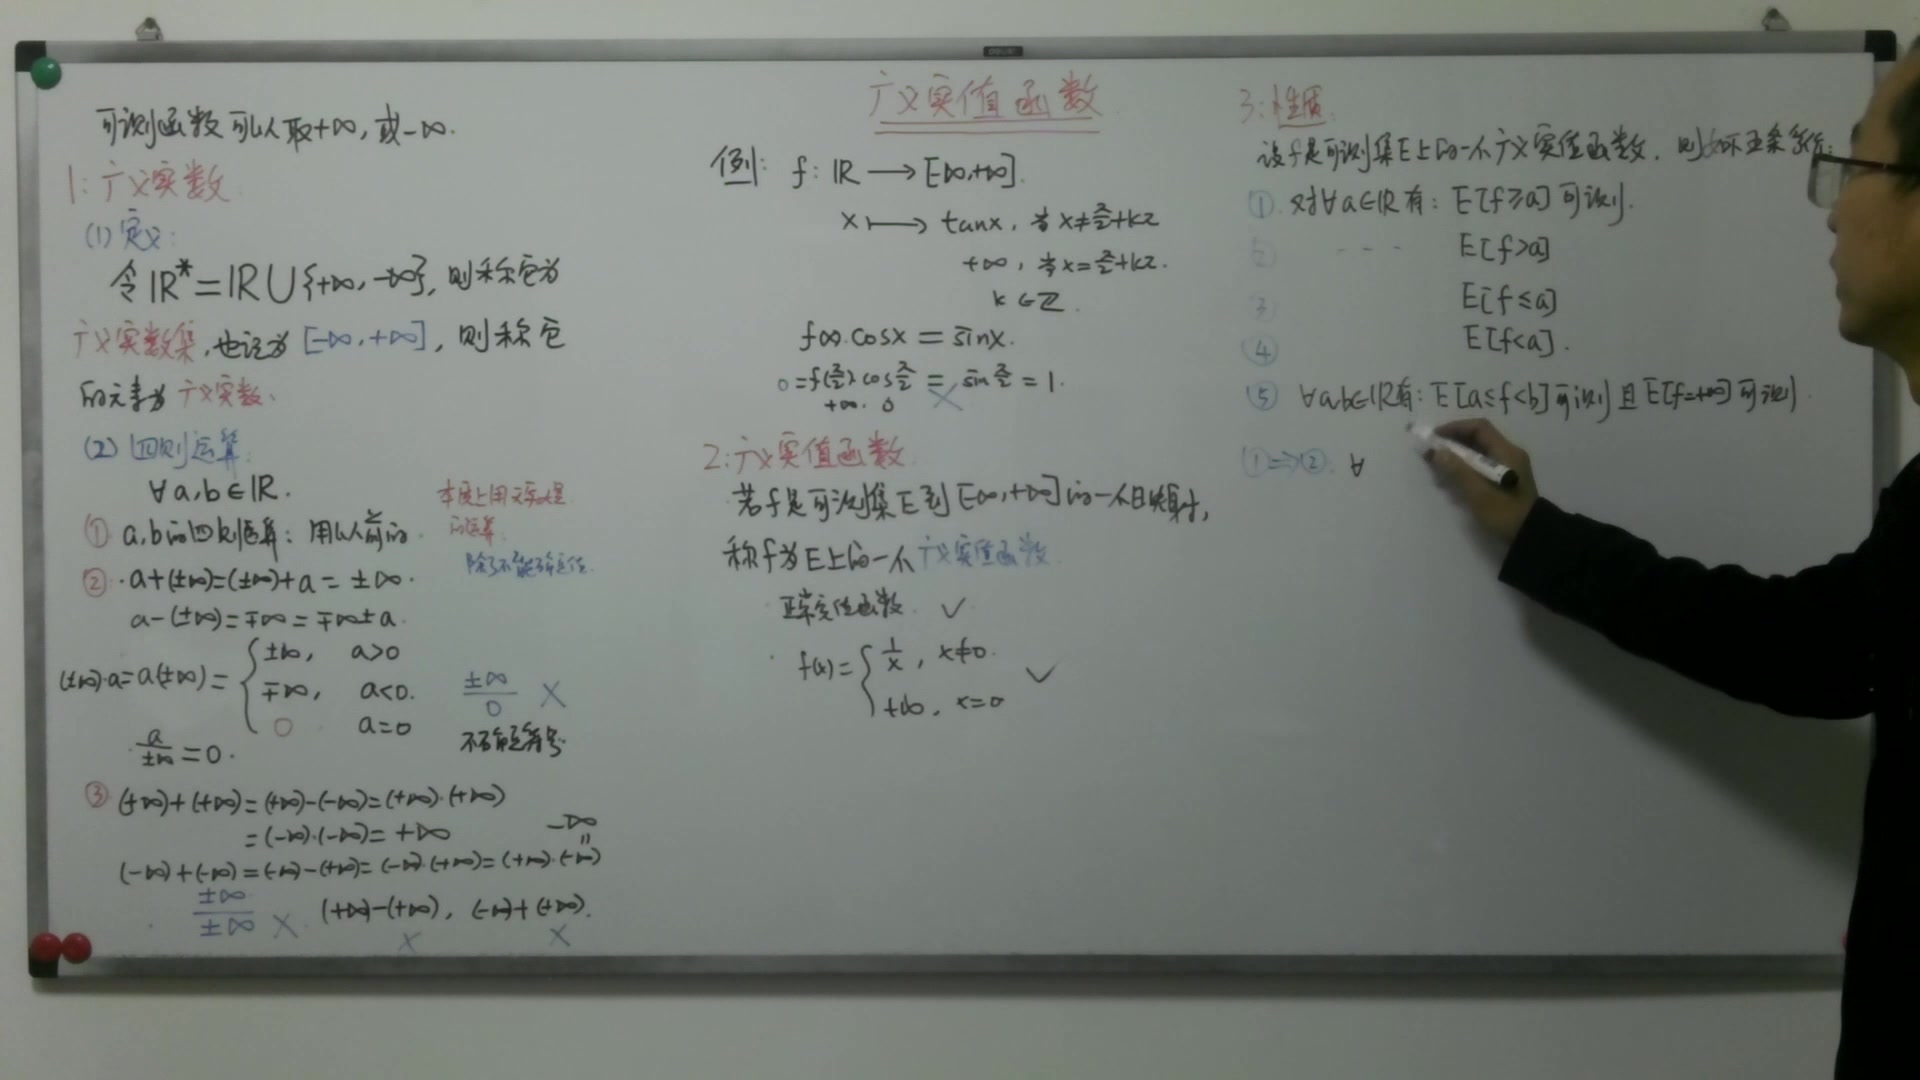 广义实值函数
可测函数可以取+∞,或-∞.
1:广义实数
(1)定义:
令ℝ*=ℝ∪{+∞,-∞},则称它为
广义实数集,也记为[-∞,+∞],则称它
的元素为广义实数.
(2)四则运算:
∀a,b∈ℝ.
① a,b的四则运算:用以前的.
本质上用
的运算.
② ·a+(±∞)=(±∞)+a=±∞.
a-(±∞)=∓∞=∓∞±a.
(±∞)·a=a(±∞)= { ±∞, a>0
∓∞, a<0.
0 a=0
±∞/0 ×
a/±∞=0.
③ (+∞)+(+∞)=(+∞)-(-∞)=(+∞)·(+∞)
=(-∞)·(-∞)=+∞
-∞
(-∞)+(-∞)=(-∞)-(+∞)=(-∞)·(+∞)=(+∞)·(-∞)
±∞/±∞ × (+∞)-(+∞), (-∞)+(+∞).
× ×
例: f:ℝ→[-∞,+∞].
x↦tanx,当x≠π/2+kπ
+∞,当x=π/2+kπ.
k∈ℤ.
f(x)·cosx=sinx.
0=f(π/2)·cosπ/2=sinπ/2=1.
+∞. 0 ×
2:广义实值函数
若f是可测集E到[-∞,+∞]的一个映射,
称f为E上的一个广义实值函数.
正常实值函数. ✓
f(x)= { 1/x, x≠0.
+∞, x=0 ✓
3:性质.
设f是可测集E上的一个广义实值函数,则如下五条等价:
① 对∀a∈ℝ有:E[f≥a]可测.
② --- E[f>a]
③ E[f≤a]
④ E[f<a].
⑤ ∀a,b∈ℝ有:E[a≤f<b]可测且E[f=+∞]可测.
①⇒②. ∀